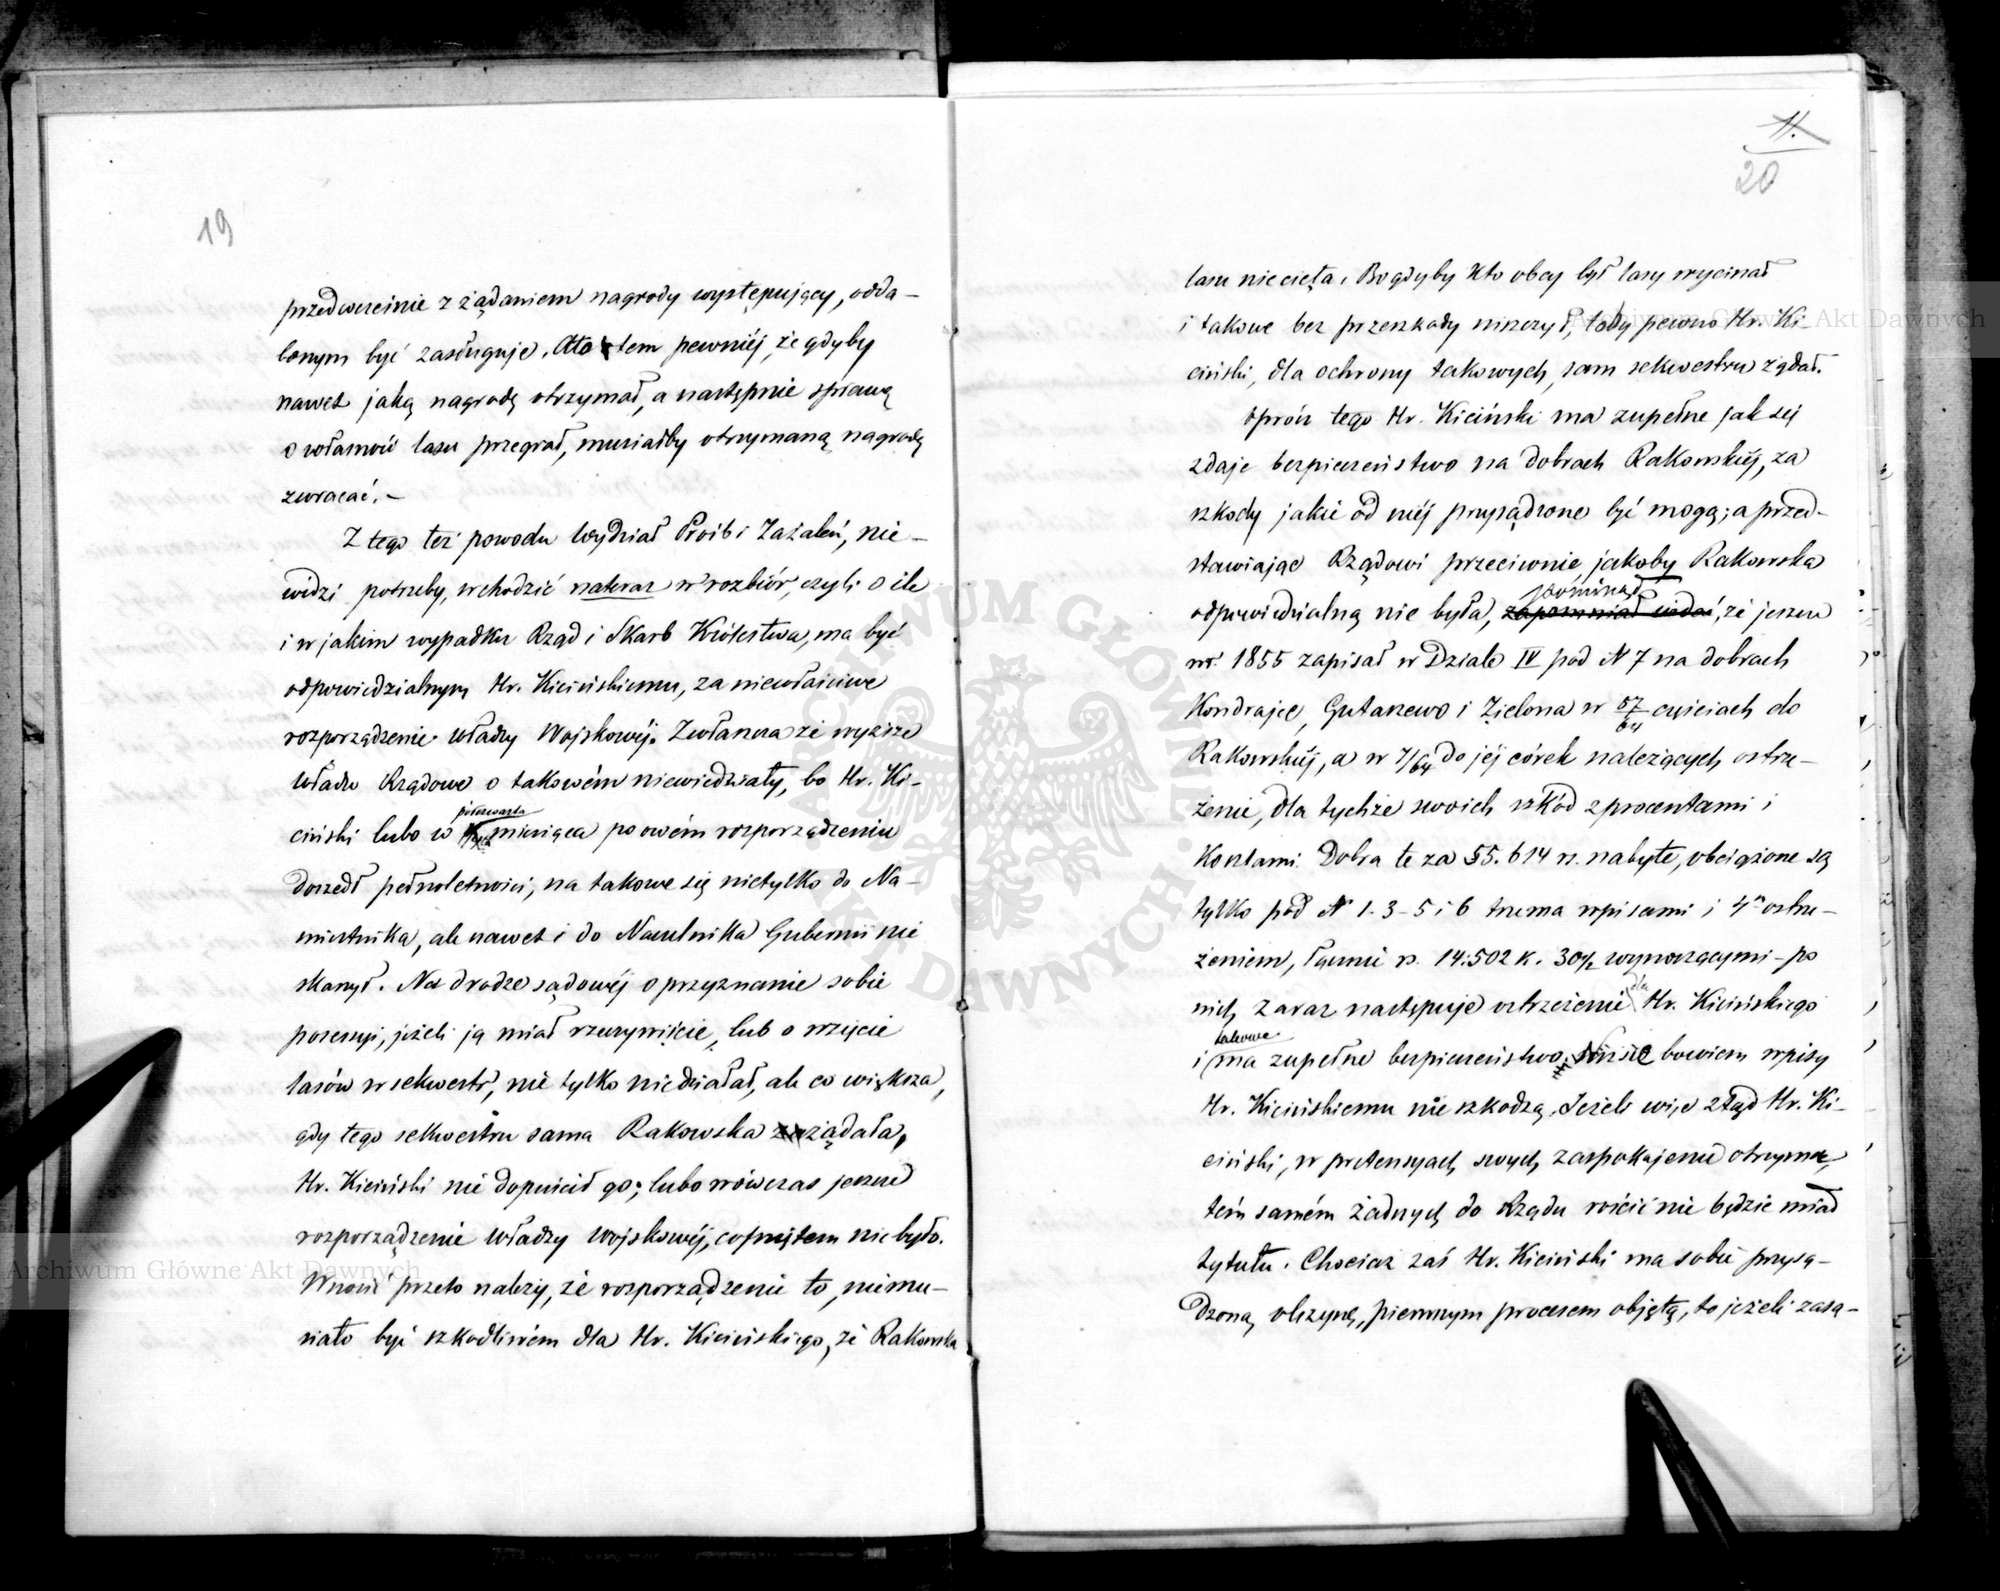 19
przedwcześnie z żądaniem nagrody występujący, odda–
lonym być zasługuje. A to tem pewniéj, że gdyby
nawet jaką nagrodę otrzymał, a następnie sprawę
o własność lasu przegrał, musiałby otrzymaną nagrodę
zwracać. –
Z tego też powodu Wydział Próśb i Zażaleń, nie–
widzi potrzeby, wchodzić nateraz w rozbiór, czyli o ile
i w jakim wypadku Rząd i Skarb Królestwa, ma być
odpowiedzialnym Hr. Kicińskiemu, za niewłaściwe
rozporządzenie władzy Wojskowéj. Zwłaszcza że wyższe
Władze Rządowe o takowém niewiedziały, bo Hr. Ki–
ciński lubo w półczwarta miesiąca po owém rozporządzeniu
doszedł pełnoletności, na takowe się nietylko do Na–
miestnika, ale nawet i do Naczelnika Gubernii nie
skarżył. Na drodze sądowéj o przyznanie sobie
posessyi, jeżeli ją miał rzeczywiście, lub o wzięcie
lasów w sekwestr, nie tylko niedziałał, ale co większa,
gdy tego sekwestru sama Rakowska zażądała,
Hr. Kiciński nie dopuścił go; lubo wówczas jeszcze
rozporządzenie Władzy Wojskowéj, cofniętem nie było.
Wnosić przeto należy, że rozporządzenie to, niemu–
siało być szkodliwém dla Hr. Kicińskiego, że Rakowska
11.
20
lasu nie cięła. Bo gdyby kto obcy był lasy wycinał
i takowe bez przeszkody niszczył, toby pewno Hr. Ki–
ciński, dla ochrony takowych, sam sekwestru żądał.
Oprócz tego Hr. Kiciński ma zupełne jak się
zdaje bezpieczeństwo na dobrach Rakowskiéj, za
szkody jakie od niéj przysądzone być mogą; a przed–
stawiając Rządowi przeciwnie, jakoby Rakowska
pominął
odpowiedzialną nie była, zapomniał widać, że jeszcze
w r. 1855 zapisał w Dziale IV pod N 7 na dobrach
Kondrajec, Gutarzewo i Zielona w 57/64 częściach do
Rakowskiéj, a w 7/64 do jéj córek należących ostrze–
żenie, dla tychże swoich szkód z procentami i
kosztami. Dobra te za 55.614 rs. nabyte, obciążone są
tylko pod N 1. 3 – 5 i 6 trzema wpisami i 4m ostrze–
żeniem, łącznie rs. 14.502 k. 30½ wynoszącymi – po
nich zaraz następuje ostrzeżenie dla Hr. Kicińskiego
takowe
i ma zupełne bezpieczeństwo, niższe bowiem wpisy
Hr. Kicińskiemu nie szkodzą. Jeżeli więc ztąd Hr. Ki–
ciński, w pretensyach swych zaspokojenie otrzyma,
tém samém żadnych do Rządu rościć nie będzie miał
tytułu. Chociaż zaś Hr. Kiciński ma sobie przysą–
dzoną olszynę, pierwszym procesem objętą, to jeżeli zasą–